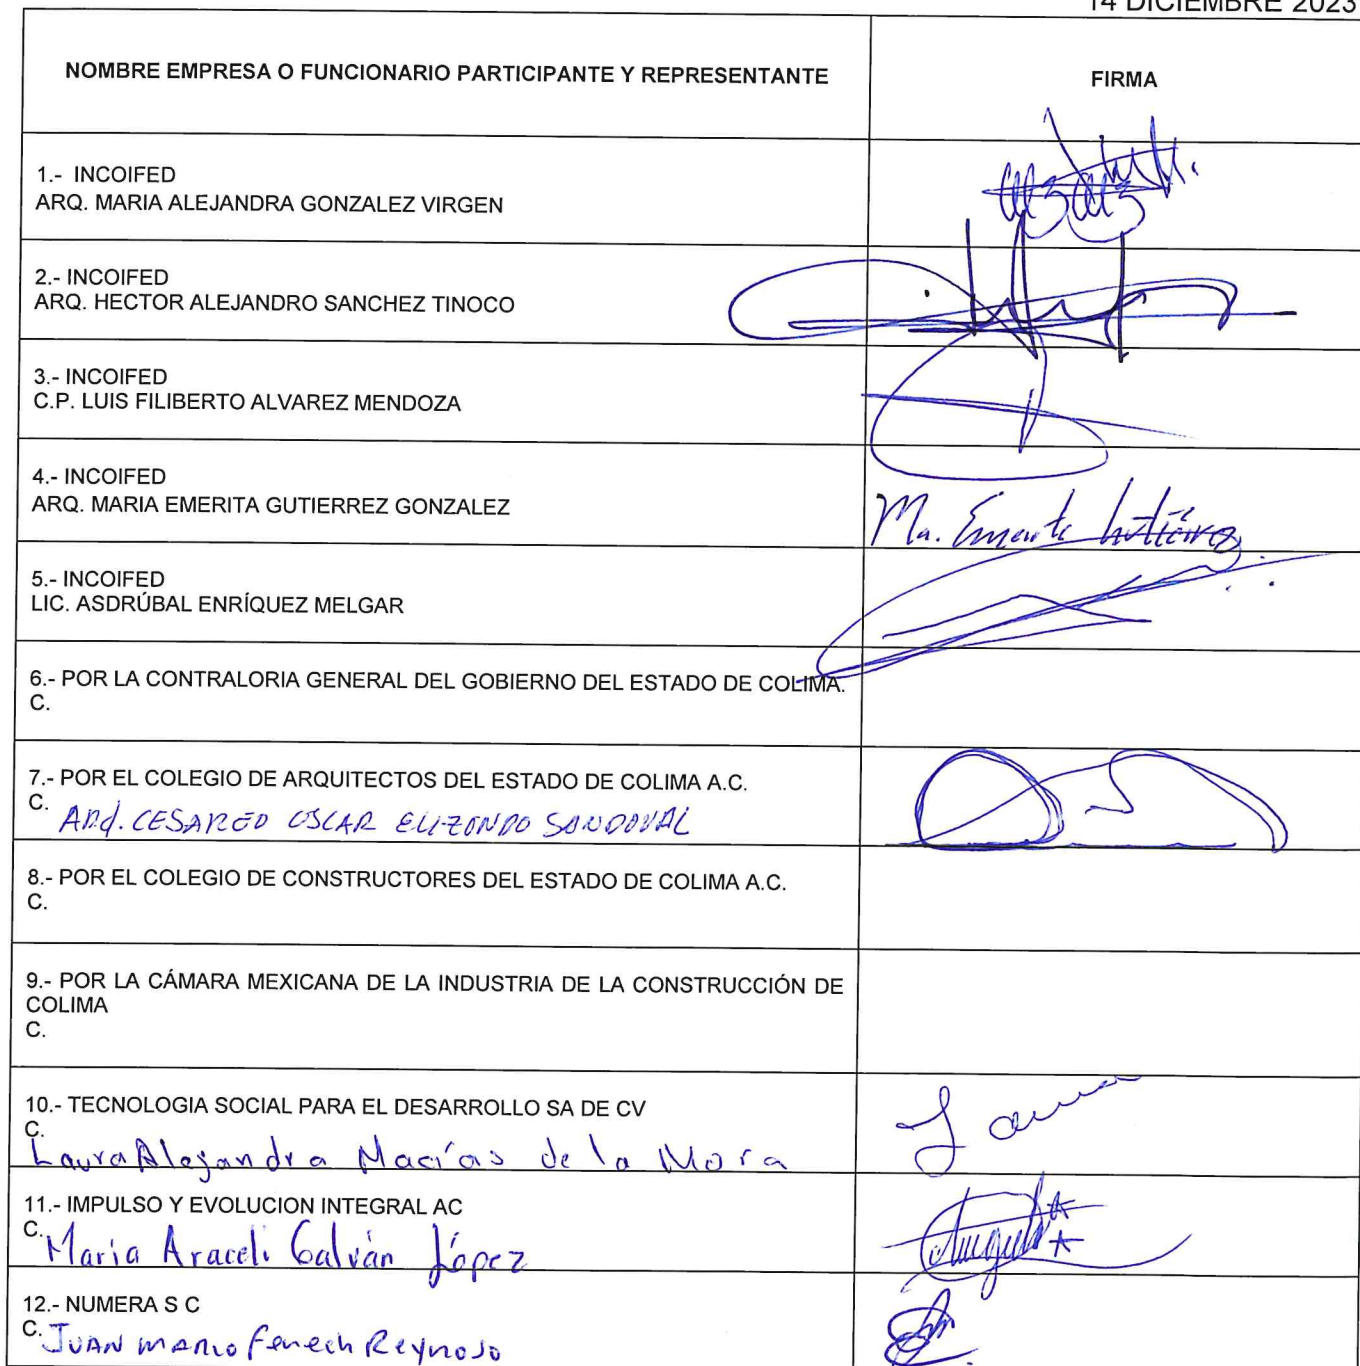 14 DICIEMBRE 2023
NOMBRE EMPRESA O FUNCIONARIO PARTICIPANTE Y REPRESENTANTE
FIRMA
1.- INCOIFED
ARQ. MARIA ALEJANDRA GONZALEZ VIRGEN
2.- INCOIFED
ARQ. HECTOR ALEJANDRO SANCHEZ TINOCO
3.- INCOIFED
C.P. LUIS FILIBERTO ALVAREZ MENDOZA
4.- INCOIFED
ARQ. MARIA EMERITA GUTIERREZ GONZALEZ
Ma. Emerita Gutiérrez
5.- INCOIFED
LIC. ASDRÚBAL ENRÍQUEZ MELGAR
6.- POR LA CONTRALORIA GENERAL DEL GOBIERNO DEL ESTADO DE COLIMA.
C.
7.- POR EL COLEGIO DE ARQUITECTOS DEL ESTADO DE COLIMA A.C.
C. ARQ. CESAREO OSCAR ELIZONDO SANDOVAL
8.- POR EL COLEGIO DE CONSTRUCTORES DEL ESTADO DE COLIMA A.C.
C.
9.- POR LA CÁMARA MEXICANA DE LA INDUSTRIA DE LA CONSTRUCCIÓN DE
COLIMA
C.
10.- TECNOLOGIA SOCIAL PARA EL DESARROLLO SA DE CV
C.
Laura Alejandra Macías de la Mora
Laura
11.- IMPULSO Y EVOLUCION INTEGRAL AC
C. Maria Araceli Galván López
12.- NUMERA S C
C. JUAN MARIO Fenech Reynoso